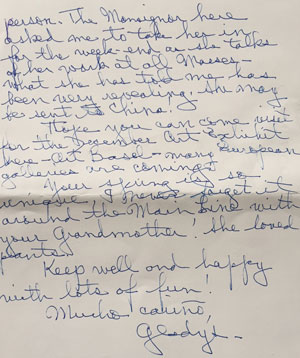 person. The Monsignor here
asked me to take her in
for the week-end as she talks
of her work at all Masses -
what she has told me has
been very revealing. She may
be sent to China!
Hope you can come visit
for the December Art Exhibit
here - Art Basel - many European
galleries are coming.
Your spring is so
unique I never forget it
around the Main Line with
your Grandmother! she loved
plants.
Keep well and happy
with lots of fun!
Mucho cariño,
Gladys -